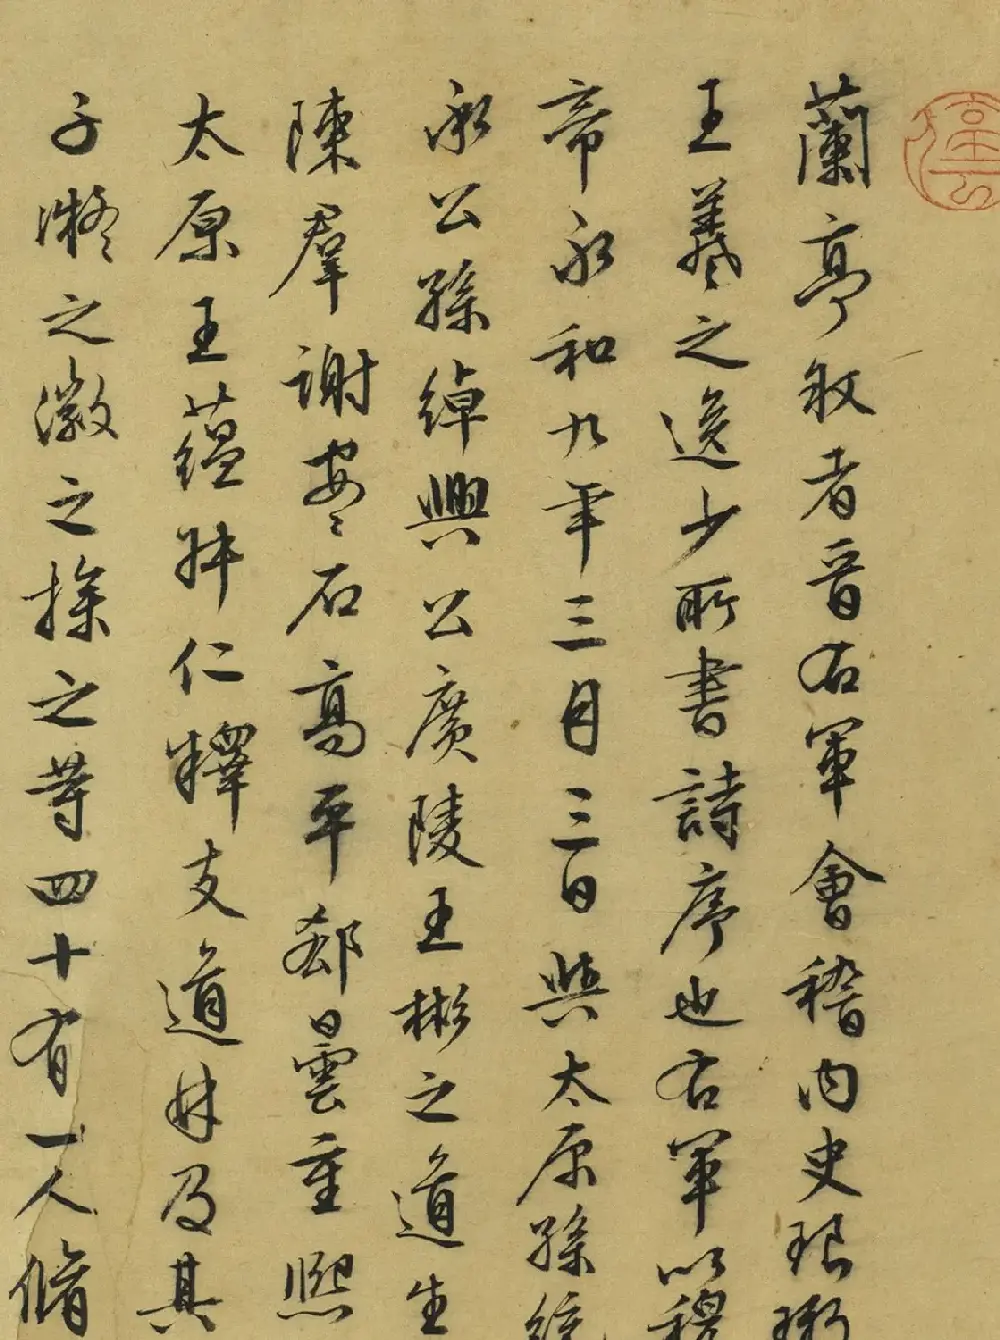 蘭亭叙者晋右軍會稽内史琅瑯
王羲之逸少所書詩序也右軍以穆
帝永和九年三月三日與太原孫統
承公孫綽興公廣陵王彬之道生
陳羣謝安安石高平郄曇重熙
太原王藴叔仁釋支道林及其
子凝之徽之操之等四十有一人脩